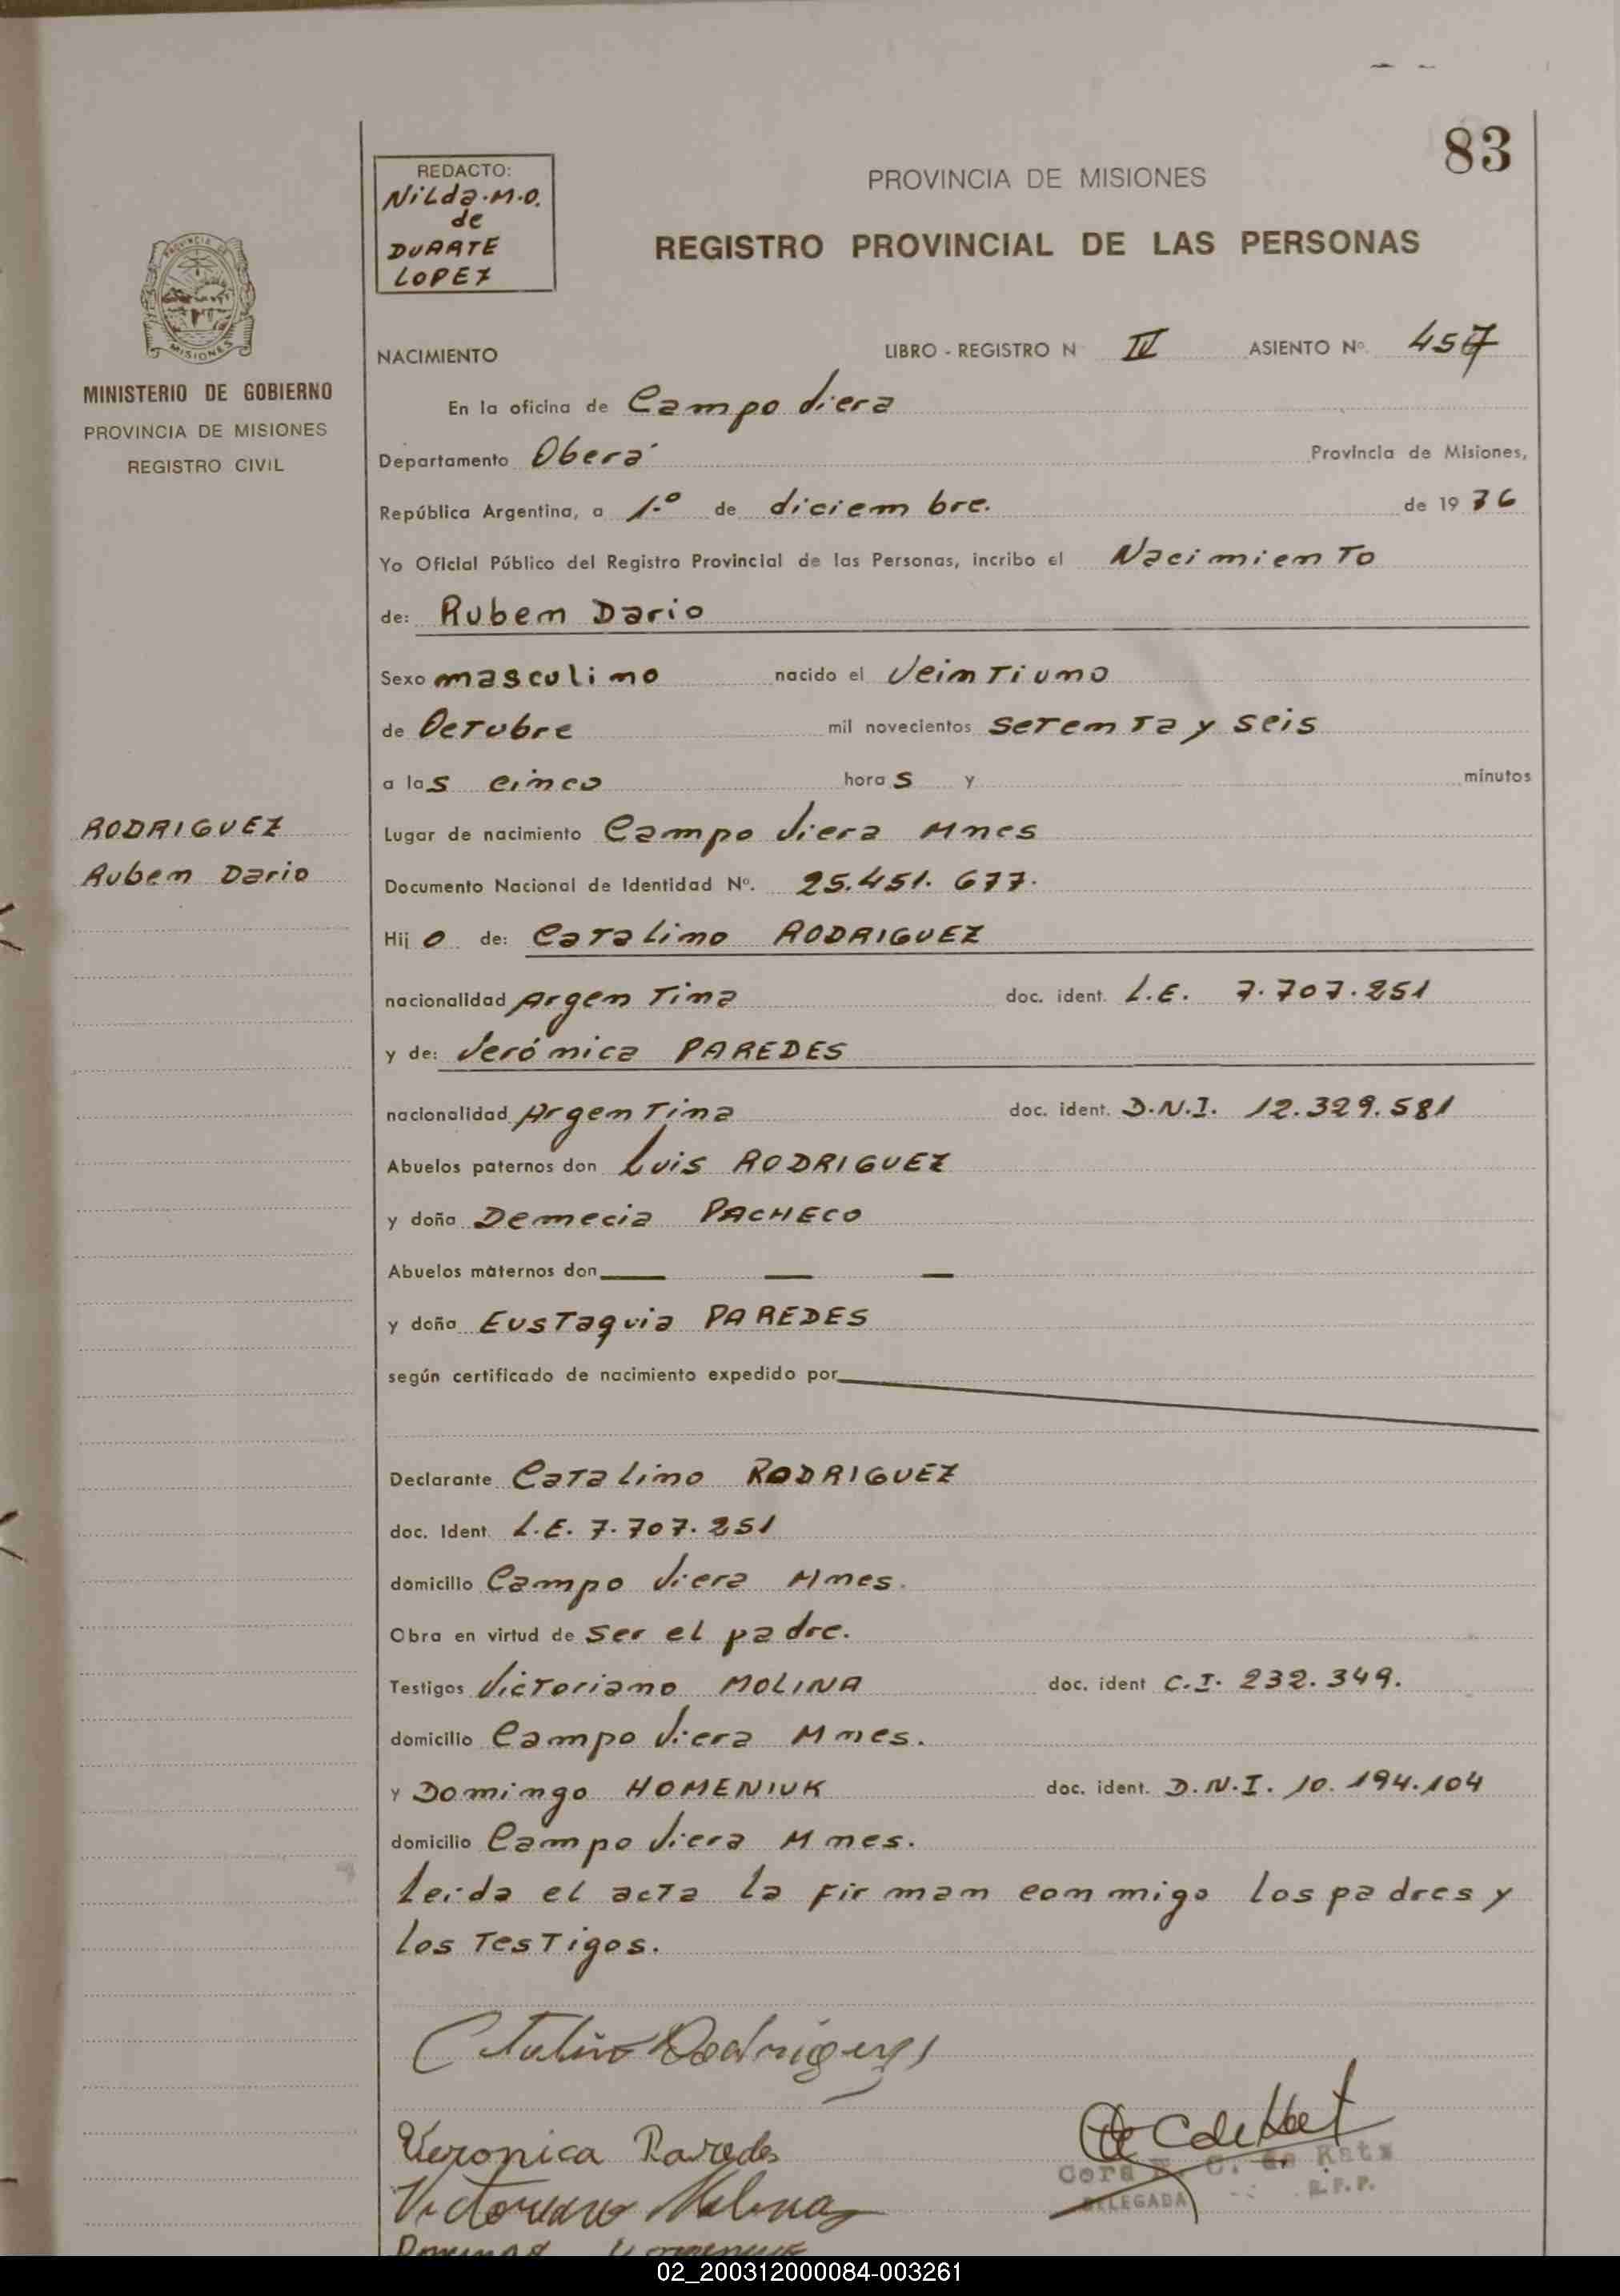 83
REDACTO:
Nilda.M.O.
de
DUARTE
LOPEZ
PROVINCIA DE MISIONES
REGISTRO PROVINCIAL DE LAS PERSONAS
PROVINCIA DE
MISIONES
MINISTERIO DE GOBIERNO
PROVINCIA DE MISIONES
REGISTRO CIVIL
NACIMIENTO LIBRO - REGISTRO N IV ASIENTO Nº. 457
En la oficina de Campo Viera
Departamento Oberá Provincia de Misiones,
República Argentina, a 1.º de diciembre. de 1976
Yo Oficial Público del Registro Provincial de las Personas, incribo el Nacimiento
de: Ruben Dario
Sexo masculino nacido el Veintiuno
de Octubre mil novecientos setenta y seis
a las cinco horas y minutos
RODRIGUEZ
Ruben Dario
Lugar de nacimiento Campo Viera Mnes
Documento Nacional de Identidad Nº. 25.451.677.
Hijo de: Catalino RODRIGUEZ
nacionalidad Argentina doc. ident. L.E. 7.707.251
y de: Verónica PAREDES
nacionalidad Argentina doc. ident. D.N.I. 12.329.581
Abuelos paternos don Luis RODRIGUEZ
y doña Demecia PACHECO
Abuelos maternos don — — —
y doña Eustaquia PAREDES
según certificado de nacimiento expedido por
Declarante Catalino RODRIGUEZ
doc. Ident. L.E. 7.707.251
domicilio Campo Viera Mnes.
Obra en virtud de ser el padre.
Testigos Victoriano MOLINA doc. ident C.I. 232.349.
domicilio Campo Viera Mnes.
y Domingo HOMENIUK doc. ident. D.N.I. 10.194.104
domicilio Campo Viera Mnes.
Leida el acta la firman conmigo los padres y
los testigos.
Rodriguez
Veronica Paredes
Victoriano Molina
Cora C. de Katz
DELEGADA R.P.P.
02_200312000084-003261